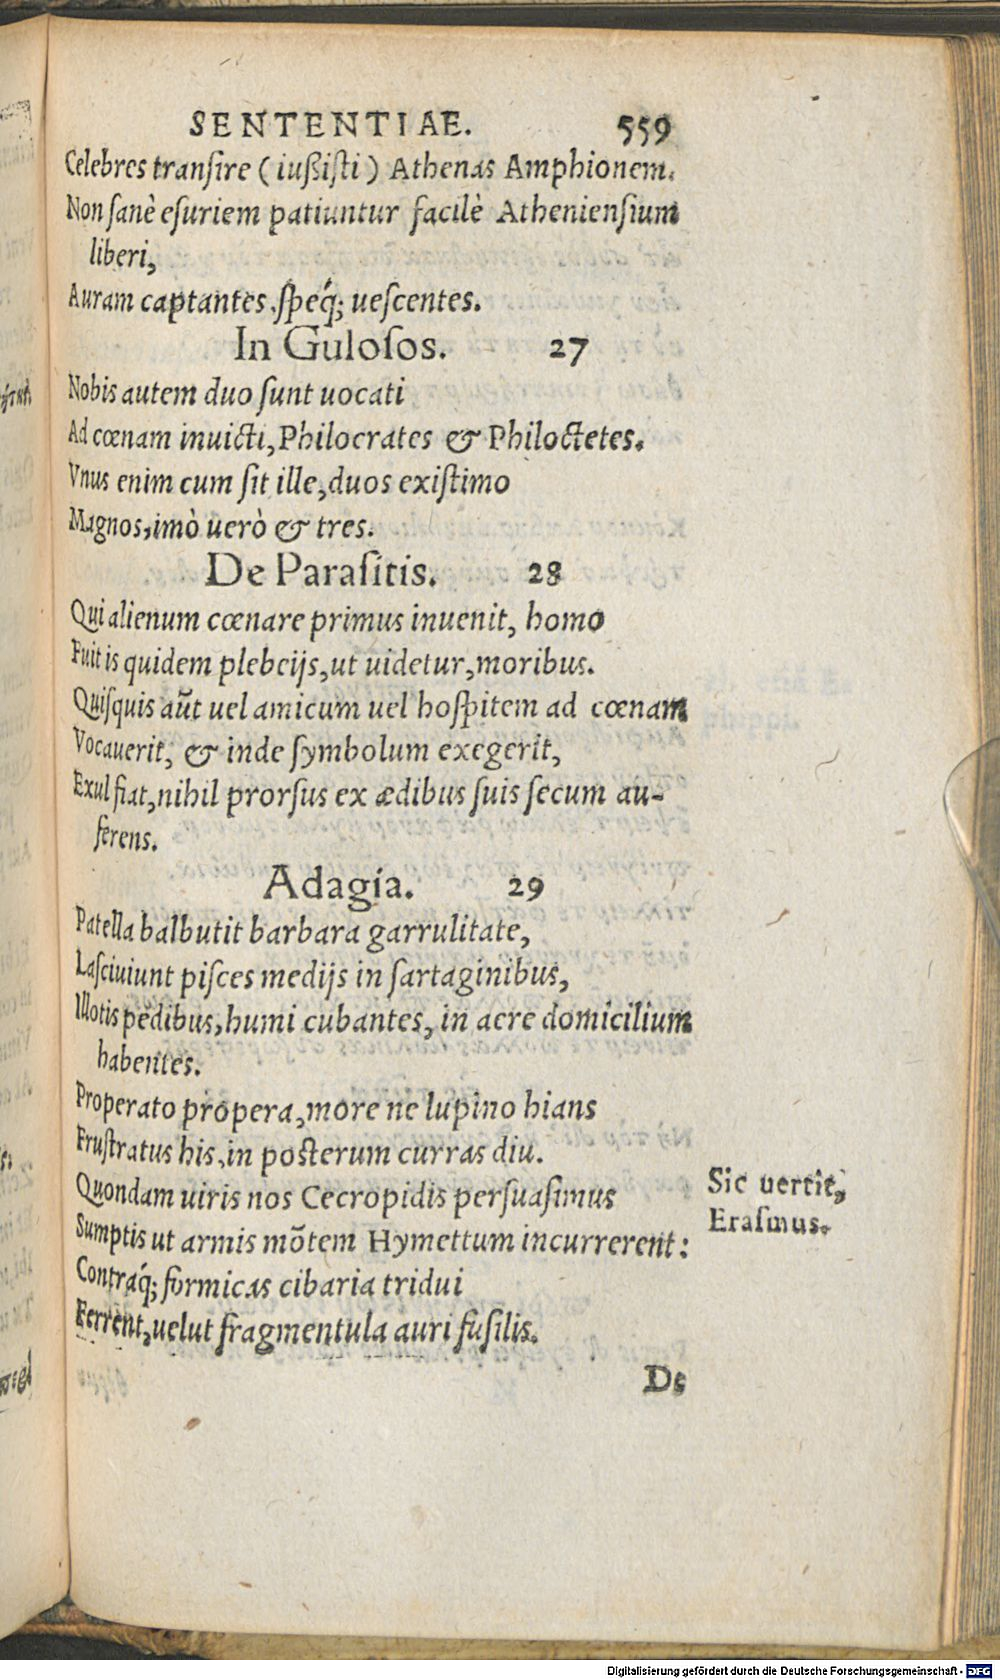 SENTENTIAE. 559
Celebres transire (iußisti) Athenas Amphionem.
Non sanè esuriem patiuntur facilè Atheniensium
liberi,
Auram captantes, speq́; uescentes.
In Gulosos. 27
Nobis autem duo sunt uocati
Ad cœnam inuicti, Philocrates & Philoctetes.
Vnus enim cum sit ille, duos existimo
Magnos, imò uerò & tres.
De Parasitis. 28
Qui alienum cœnare primus inuenit, homo
Fuit is quidem plebeijs, ut uidetur, moribus.
Quisquis aūt uel amicum uel hospitem ad cœnam
Vocauerit, & inde symbolum exegerit,
Exul fiat, nihil prorsus ex ædibus suis secum au-
ferens.
Adagia. 29
Patella balbutit barbara garrulitate,
Lasciuiunt pisces medijs in sartaginibus,
Illotis pedibus, humi cubantes, in aere domicilium
habentes.
Properato propera, more ne lupino hians
Frustratus his, in posterum curras diu.
Quondam uiris nos Cecropidis persuasimus
Sic uertit,
Sumptis ut armis mōtem Hymettum incurrerent:
Erasmus.
Contraq́; formicas cibaria tridui
Ferrent, uelut fragmentula auri fusilis.
De
Digitalisierung gefördert durch die Deutsche Forschungsgemeinschaft - DFG